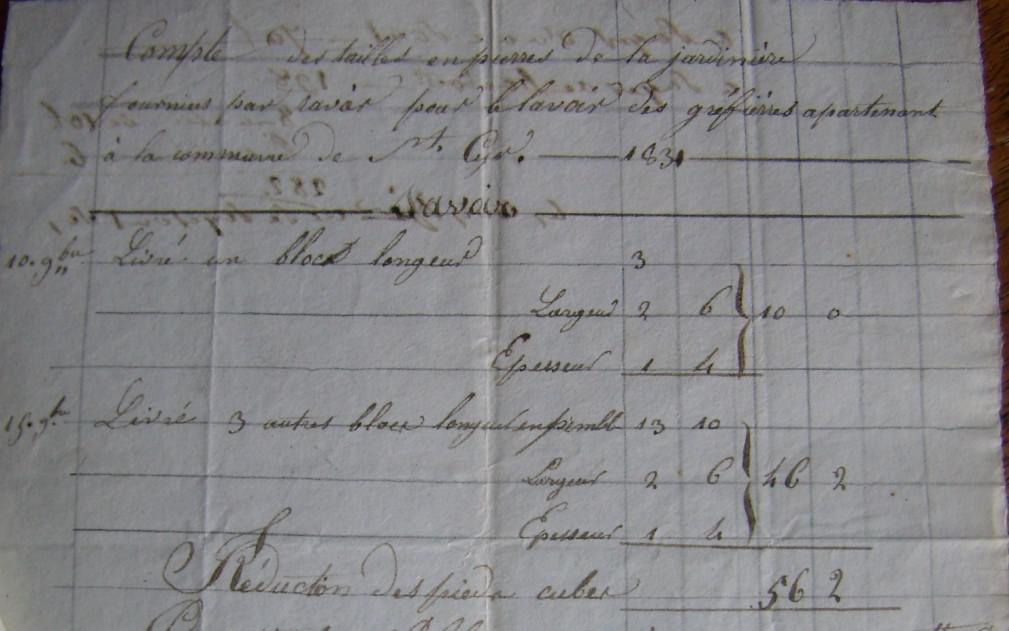 Compte des tailles en pierres de la jardinière
fournies par ravar pour le lavoir des gréfières apartenant
à la commune de St. Cyr. 1831
Savoir
10. 9bre Livré un bloct longeur 3
Largeur 2 6 10 0
Epesseur 1 4
15. 9bre Livré 3 autres blocs longeur ensemble 13 10
Largeur 2 6 46 2
Epesseur 1 4
Réduction des pieds cubes 56 2